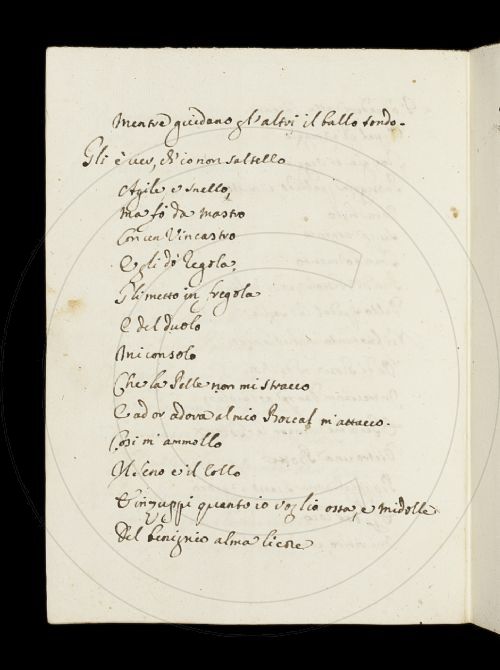 Mentre guidano gl'altri il ballo tondo.
Gli è ver, ch'io non saltello
Agile e snello,
Ma fò da Mastro
Con un Vincastro
E gli dò Regola,
Gli metto in fregola
E del duolo
Mi consolo
Che la Pelle non mi stracco
E ad or ad ora al mio Boccal m'attacco.
Così m'ammollo
Il seno e il Collo
E inzuppi quanto io voglio ossa, e midolle
Del benigno alma licore